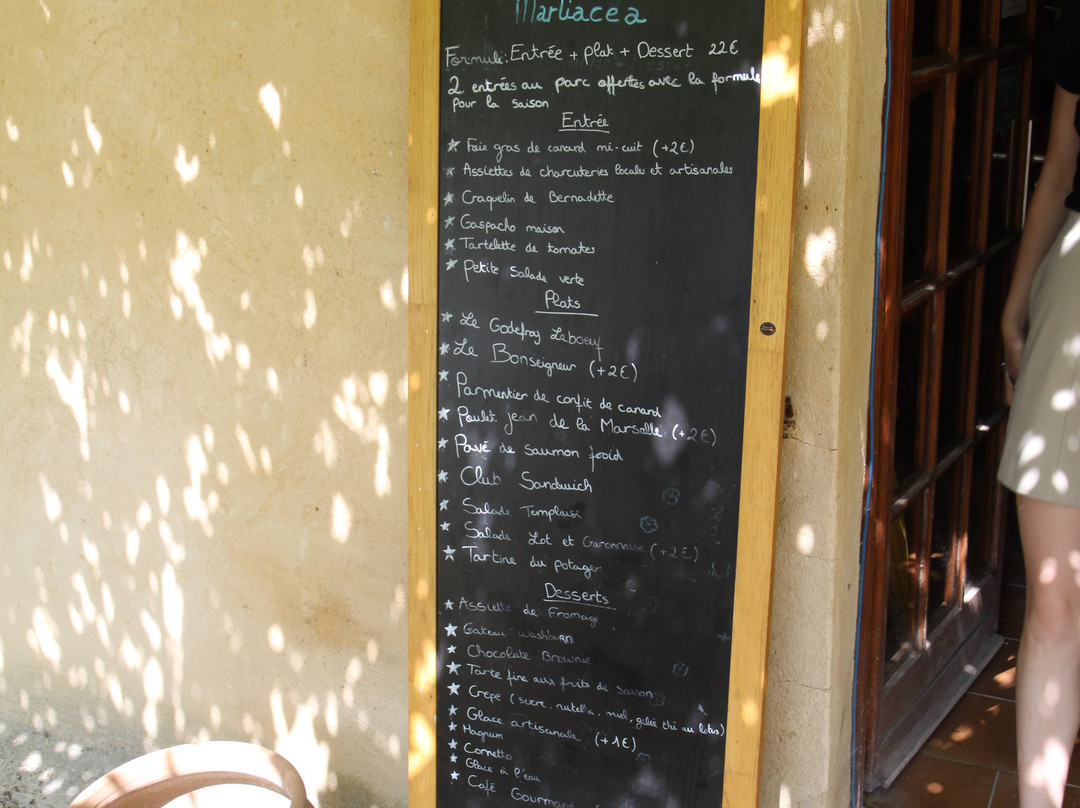 Marliacea
Formule: Entrée + plat + Dessert 22€
2 entrées au parc offertes avec la formule
pour la saison
Entrée
★ Foie gras de canard mi-cuit (+2€)
★ Assiettes de charcuteries locales et artisanales
★ Craquelin de Bernadette
★ Gaspacho maison
★ Tartelette de tomates
★ Petite Salade verte
Plats
★ Le Godefroy Leboeuf
★ Le Bonseigneur (+2€)
★ Parmentier de confit de canard
★ Poulet jean de la Marsalle (+2€)
★ Pavé de saumon froid
★ Club Sandwich
★ Salade Templaise
★ Salade Lot et Garonnaise (+2€)
★ Tartine du potager
Desserts
★ Assiette de Fromage
★ Gateau washburn
★ Chocolate Brownie
★ Tarte fine aux fruits de saison
★ Crepe (sucre, nutella, miel, gelée thé au lotus)
★ Glace artisanale (+1€)
★ Magnum
★ Cornetto
★ Glace à l'eau
★ Café Gourmand